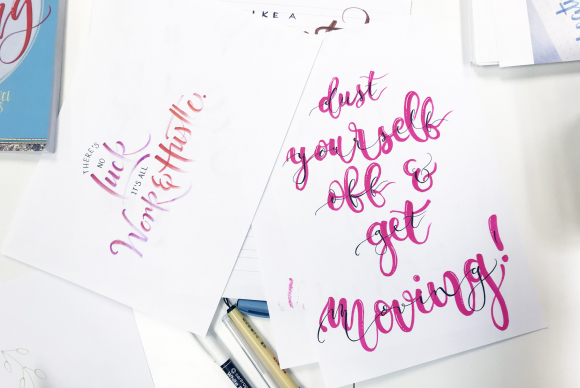 IKE A
THERE'S
NO
luck
IT'S ALL
Work & Hustle.
dust
yourself
off &
get
moving!